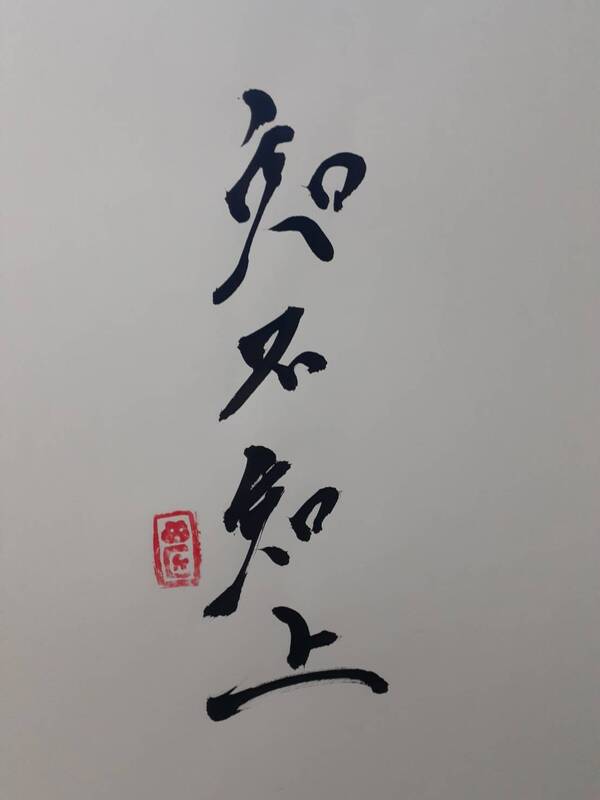 知不知上